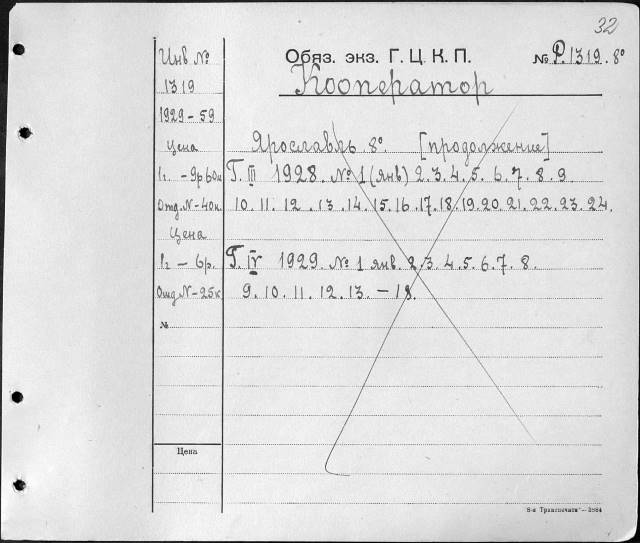 32
Инв № Обяз. экз. Г. Ц. К. П. № Р.1319. 8°
1319 Кооператор
1929-59
Цена Ярославль 8°. [продолжение]
1г. - 9р60к Г. III 1928. № 1 (янв) 2. 3. 4. 5. 6. 7. 8. 9
Отд. N-40к. 10. 11. 12. 13. 14. 15. 16. 17. 18. 19. 20. 21. 22. 23. 24.
Цена
1г - 6р. Г. IV 1929. № 1 янв. 2. 3. 4. 5. 6. 7. 8.
Отд N-25к 9. 10. 11. 12. 13. - 18.
№
Цена
8-я Транспечати"-3884